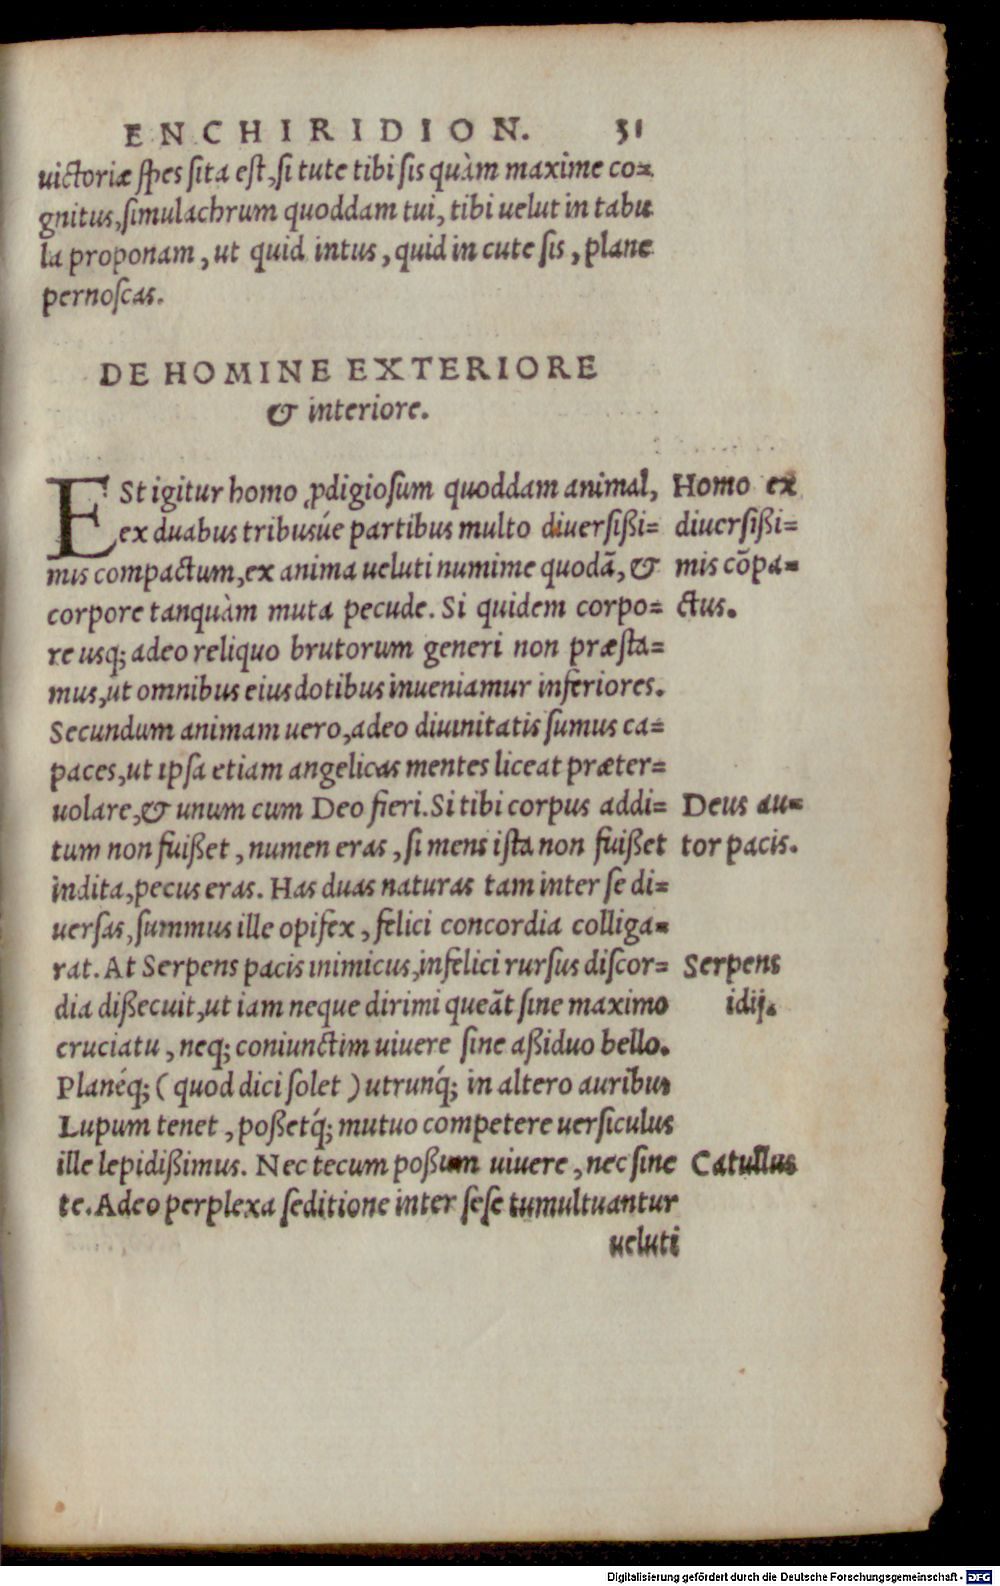 ENCHIRIDION. 31
uictoriæ spes sita est, si tute tibi sis quàm maxime co=
gnitus, simulachrum quoddam tui, tibi uelut in tabu
la proponam, ut quid intus, quid in cute sis, plane
pernoscas.
DE HOMINE EXTERIORE
& interiore.
ESt igitur homo ꝓdigiosum quoddam animal,
ex duabus tribusúe partibus multo diuersißi=
mis compactum, ex anima ueluti numime quodã, &
corpore tanquàm muta pecude. Si quidem corpo=
re usq; adeo reliquo brutorum generi non præsta=
mus, ut omnibus eius dotibus inueniamur inferiores.
Secundum animam uero, adeo diuinitatis sumus ca=
paces, ut ipsa etiam angelicas mentes liceat præter=
uolare, & unum cum Deo fieri. Si tibi corpus addi=
tum non fuißet, numen eras, si mens ista non fuißet
indita, pecus eras. Has duas naturas tam inter se di=
uersas, summus ille opifex, felici concordia colliga=
rat. At Serpens pacis inimicus, infelici rursus discor=
dia dißecuit, ut iam neque dirimi queãt sine maximo
cruciatu, neq; coniunctim uiuere sine aßiduo bello.
Planéq; (quod dici solet) utrunq́; in altero auribus
Lupum tenet, poßetq́; mutuo competere uersiculus
ille lepidißimus. Nec tecum poßum uiuere, nec sine
te. Adeo perplexa seditione inter sese tumultuantur
ueluti
Homo ex
diuersißi=
mis cõpa=
ctus.
Deus au=
tor pacis.
Serpens
idij.
Catullus
Digitalisierung gefördert durch die Deutsche Forschungsgemeinschaft - DFG